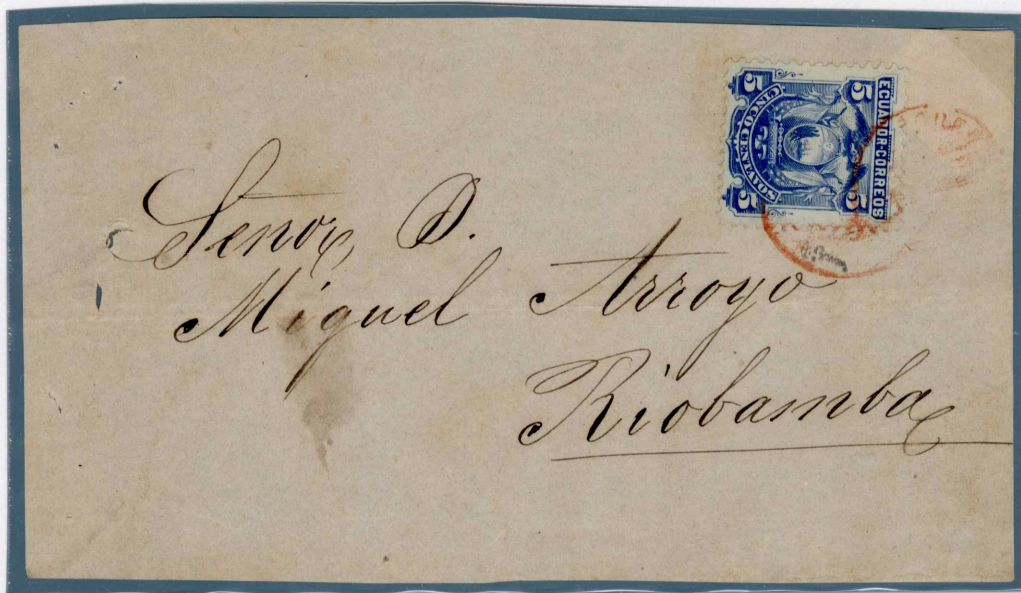 ECUADOR-CORREOS
5 5
CINCO CENTAVOS
5 5
Señor D.
Miguel Arroyo
Riobamba